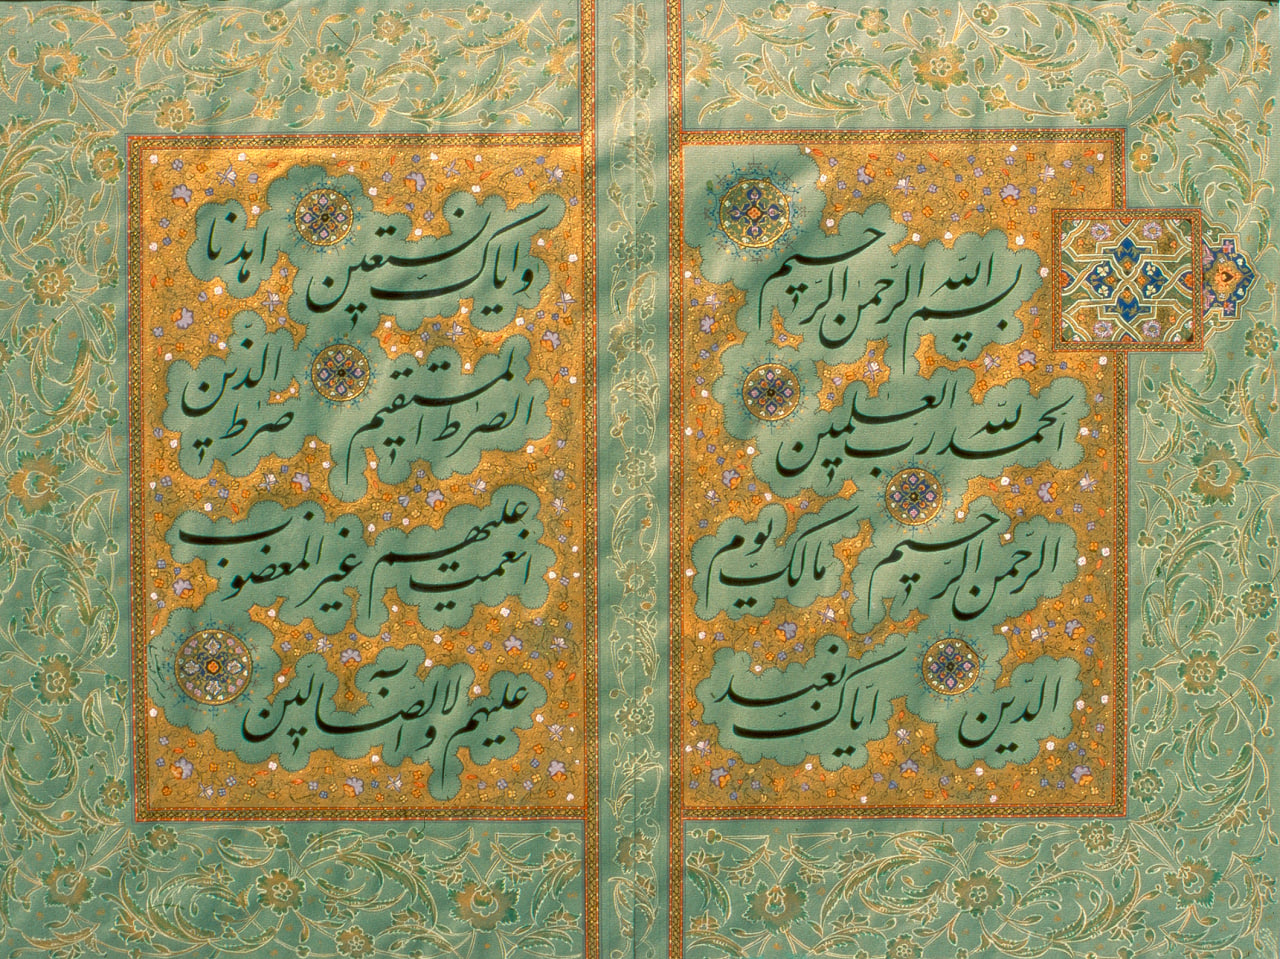 بسم اللّه الرّحمن الرّحيم
الحمد للّه رب العٰلمين
الرّحمن الرّحيم مالك يوم
الدّين ايّاك نعبد
و ايّاك نستعين اهدنا
الصرٰط المستقيم صرٰط الذّين
انعمت عليهم غير المغضوب
عليهم ولا الضّآلّين